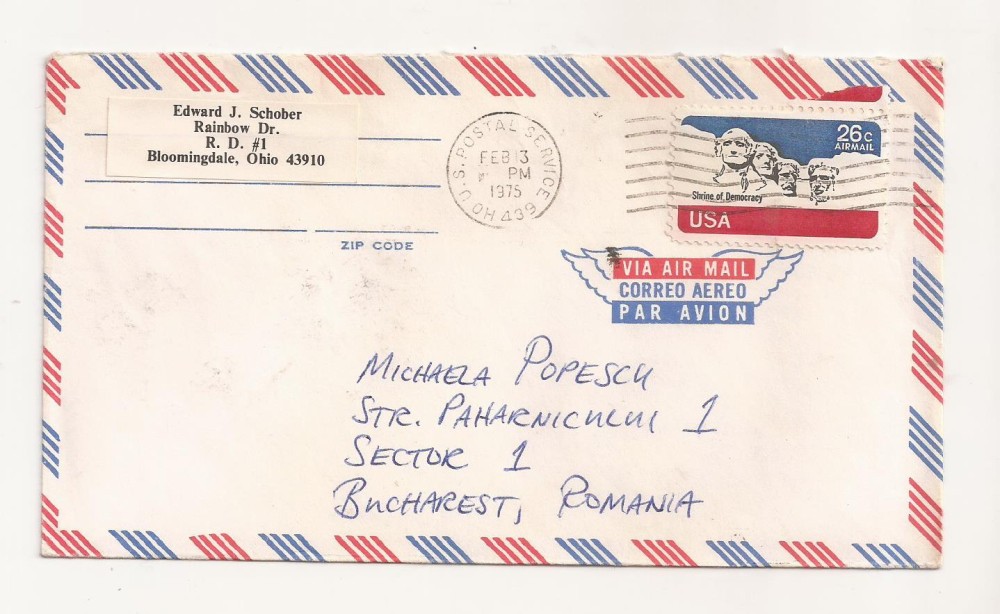 Edward J. Schober
Rainbow Dr.
R. D. #1
Bloomingdale, Ohio 43910
ZIP CODE
U.S. POSTAL SERVICE
OH 439
FEB 13
PM
1975
26c
AIRMAIL
Shrine of Democracy
USA
VIA AIR MAIL
CORREO AEREO
PAR AVION
MICHAELA POPESCU
STR. PAHARNICULUI 1
SECTOR 1
BUCHAREST, ROMANIA